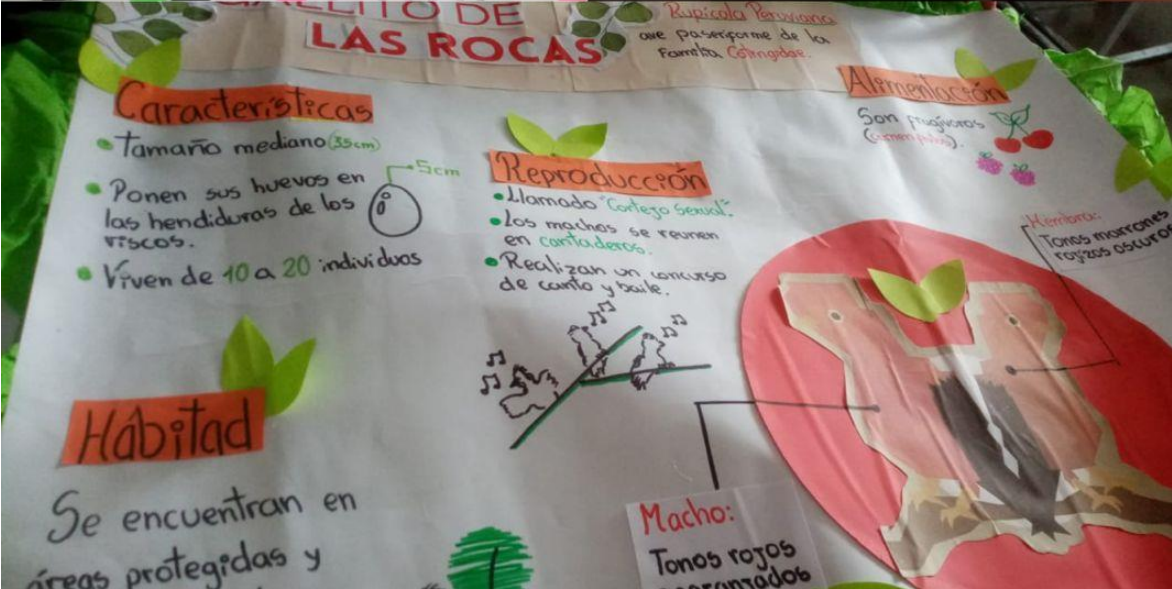 GALLITO DE
LAS ROCAS
Rupicola Peruviana
ave paseriforme de la
Familia Cotingidae.
Características
Tamaño mediano (35cm)
Ponen sus huevos en
las hendiduras de los
riscos.
5cm
Viven de 10 a 20 individuos
Reproducción
Llamado "Cortejo Sexual".
Los machos se reunen
en cantaderos.
Realizan un concurso
de canto y baile.
Alimentación
Son frugívoros
(comen frutos).
Hembra:
Tonos marrones
rojizos oscuros
Hábitad
Se encuentran en
áreas protegidas y
Macho:
Tonos rojos
anaranjados